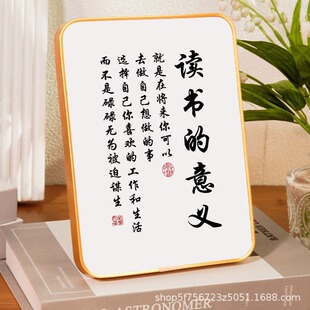 读书的意义
就是在将来你可以
去做自己想做的事
选择自己你喜欢的工作和生活
而不是碌碌无为被迫谋生
shop5f756723z5051.1688.com